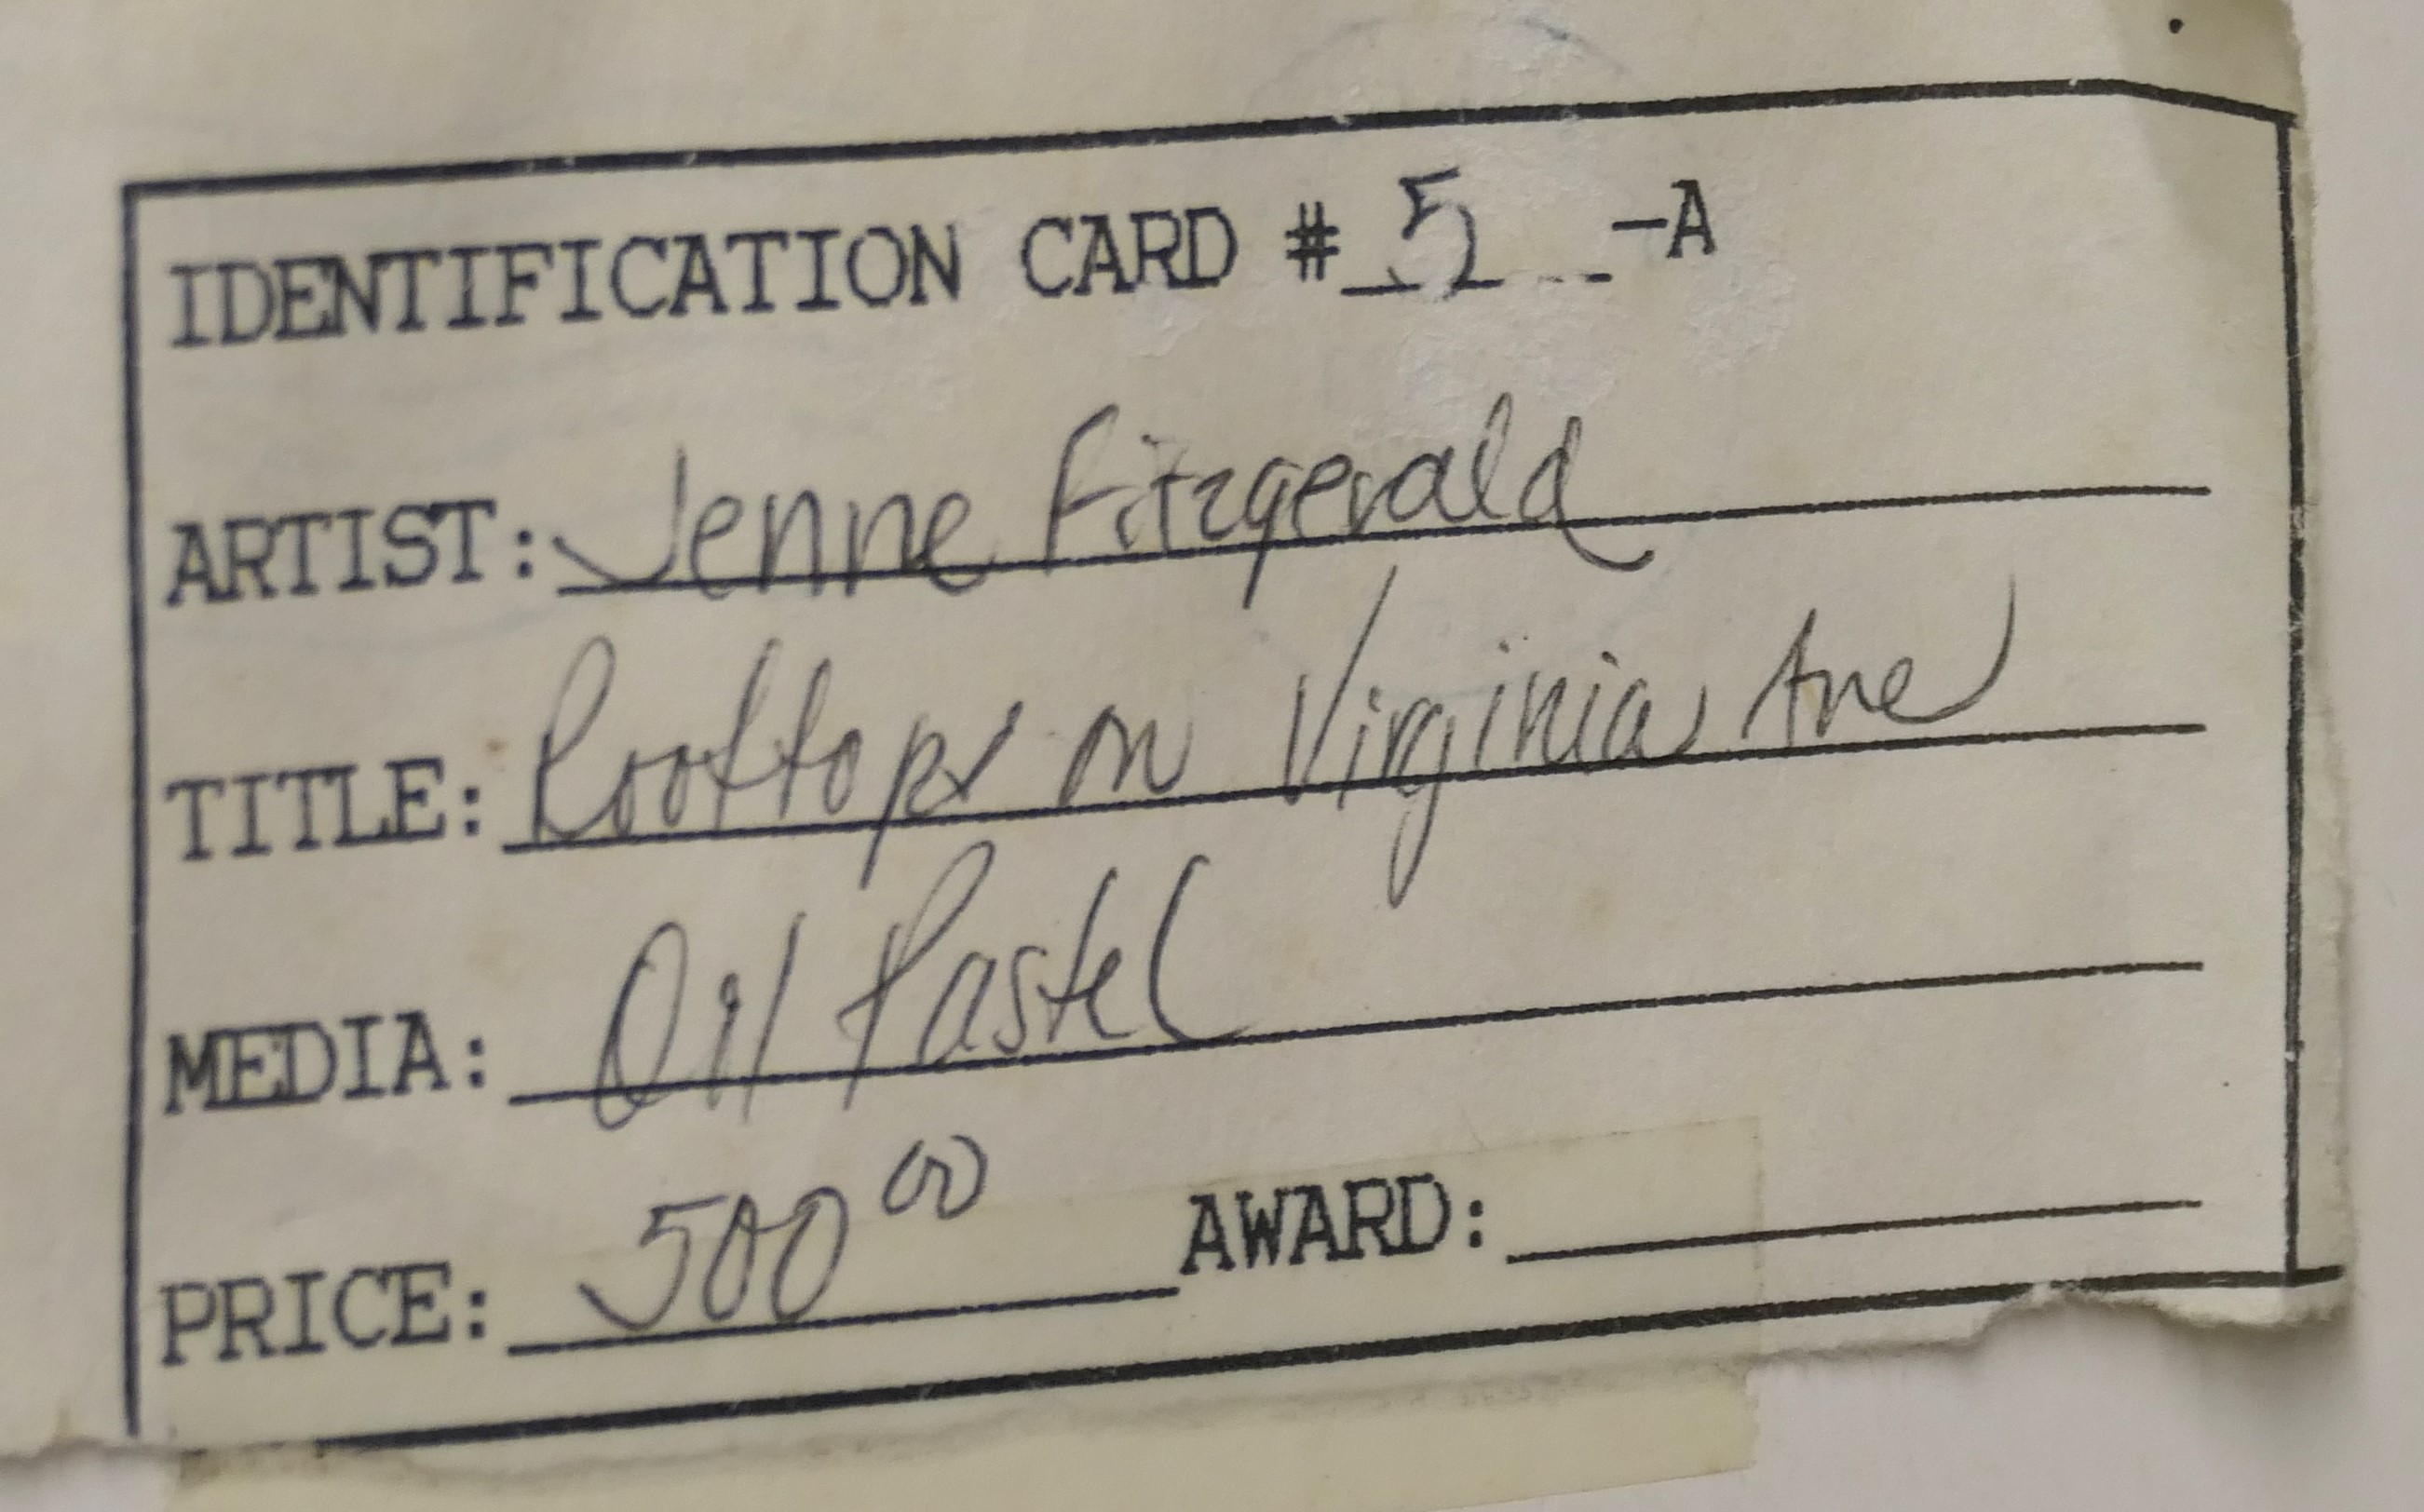 IDENTIFICATION CARD # 5 -A
ARTIST: Jenne Fitzgerald
TITLE: Rooftops on Virginia Ave
MEDIA: Oil Pastel
PRICE: 500 00 AWARD: